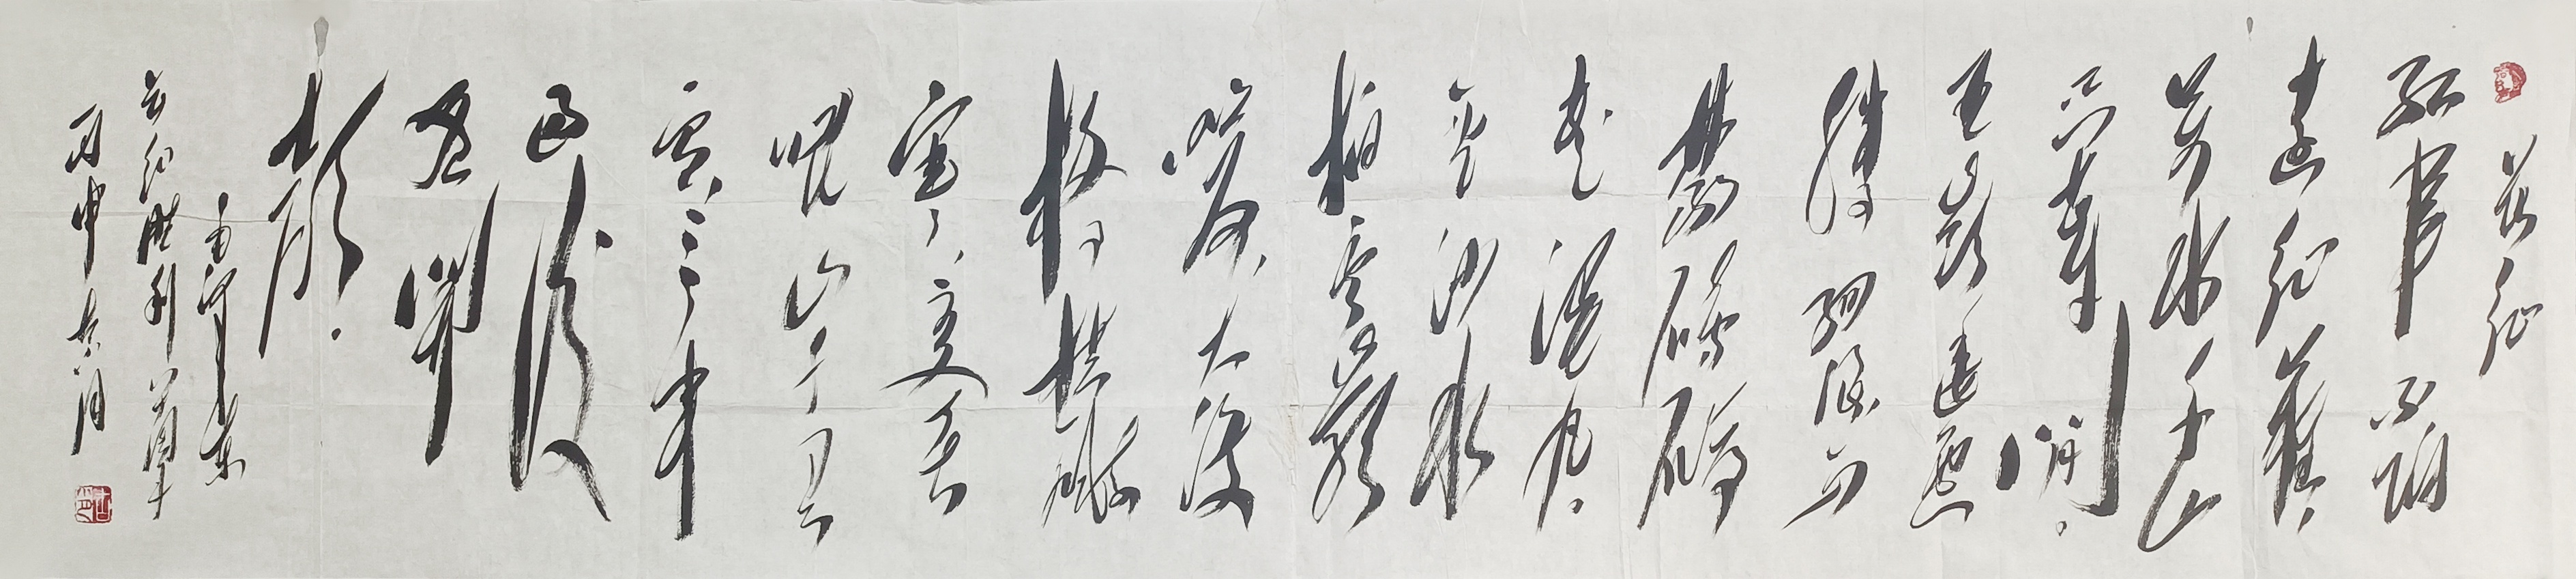 长征
紅軍不怕
遠征難，
萬水千山
只等閒。
五嶺逶迤
騰細浪，烏
蒙磅礴
走泥丸。
金沙水
拍雲崖
暖，大渡
橋橫鐵
索寒。更喜
岷山千里
雪，三軍
過後
盡開
顏。
毛澤東
勝利
丙申 月